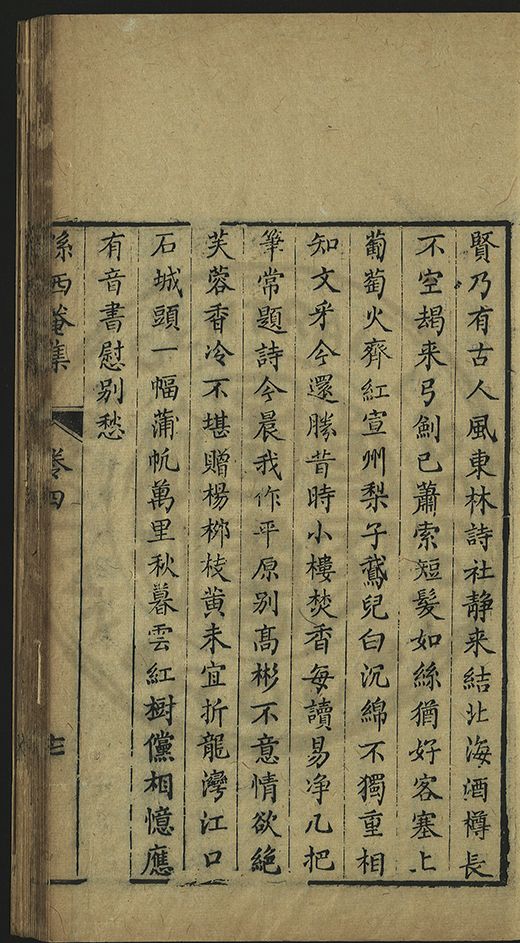 賢乃有古人風東林詩社靜来結北海酒樽長
不空朅来弓劍已蕭索短髮如絲猶好客塞上
葡萄火齊紅宣州梨子鵞兒白沉綿不獨重相
知文采今還勝昔時小樓焚香每讀易净几把
筆常題詩今晨我作平原别髙彬不意情欲絶
芙蓉香冷不堪贈楊桞枝黄未宜折龍灣江口
石城頭一幅蒲帆萬里秋暮雲紅樹儻相憶應
有音書慰别愁
孫西菴集
卷四
七